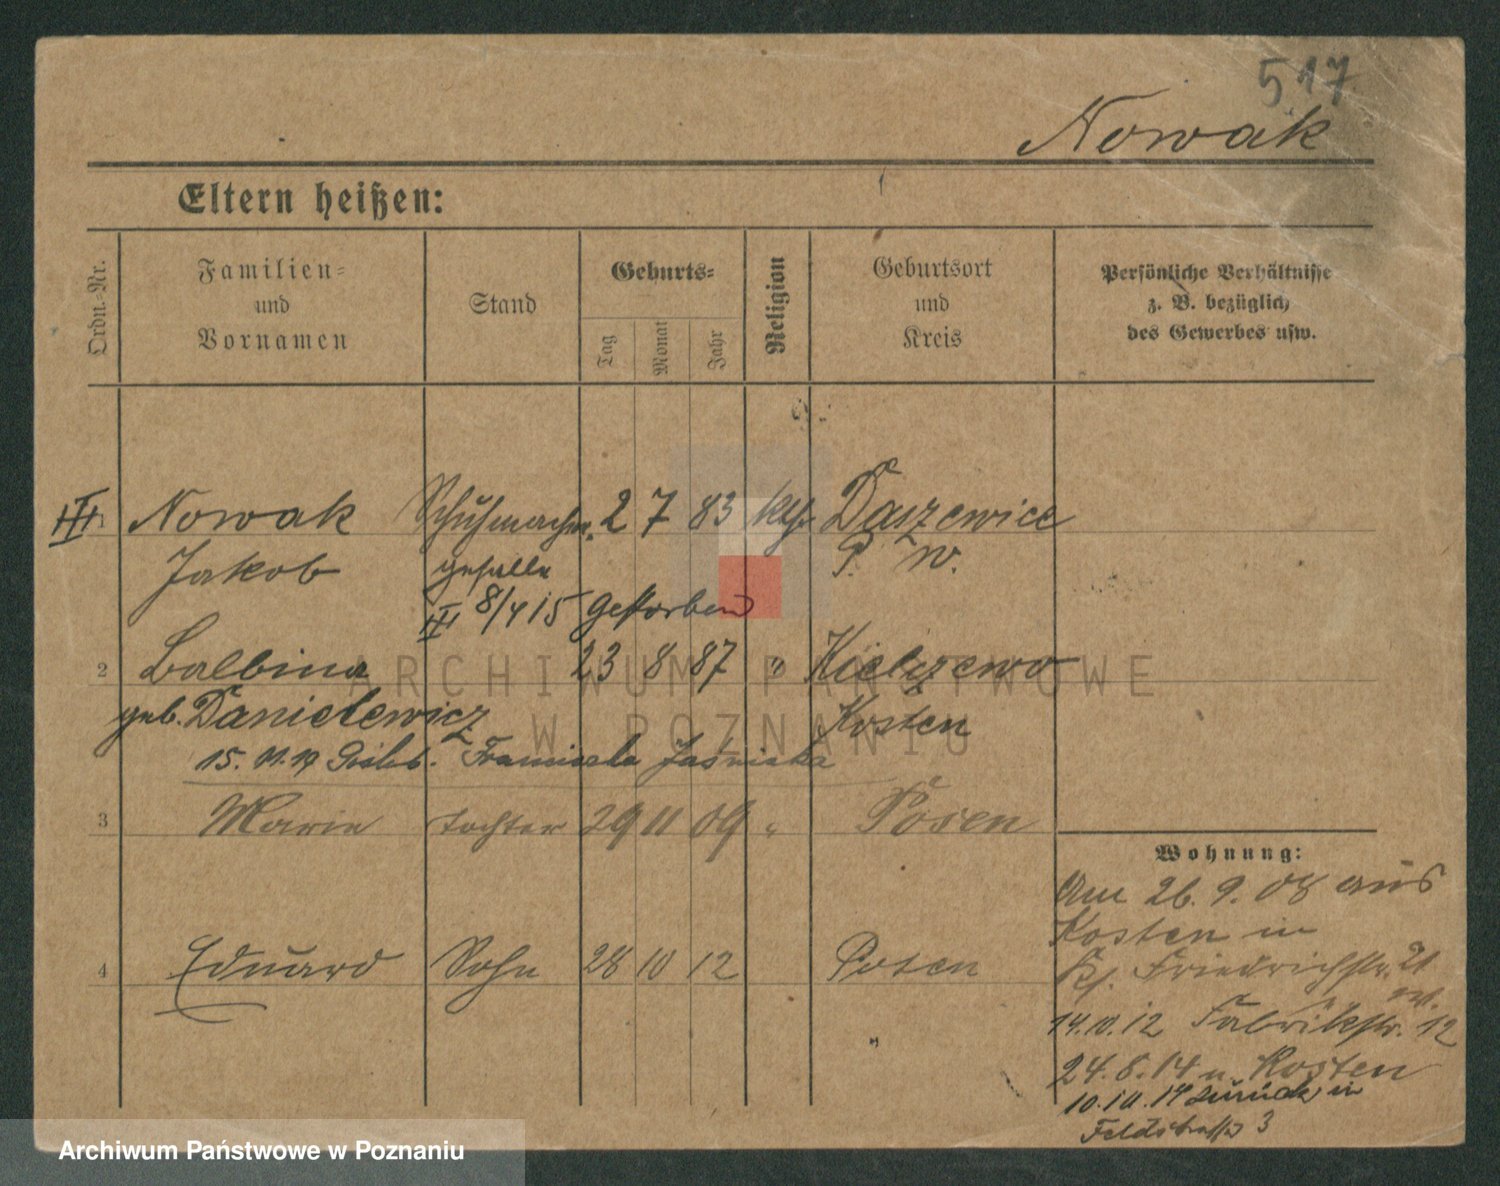 517
Nowak
Eltern heißen:
Ordn.-Nr.
Familien- und Vornamen
Stand
Geburts-
Tag
Monat
Jahr
Religion
Geburtsort und Kreis
Persönliche Verhältnisse z. B. bezüglich des Gewerbes usw.
III Nowak Schuhmacher 2 7 83 kath Daszewice
Jakob gefallen P. W.
III 8/4 15 Gestorben
2 Balbina 23 8 87 " Kielczewo
geb. Danielewicz Kosten
15. 11. 19 Franciszka Jasinska
3 Marie tochter 29 11 09 " Posen
4 Eduard Sohn 28 10 12 Posen
Wohnung:
Am 26. 9. 08 aus
Kosten in
Friedrichstr. 21
14.10.12 Fabrikstr. 12
24.8.14 n. Kosten
10.10.14 zurück in
Feldstraße 3
ARCHIWUM PAŃSTWOWE
W POZNANIU
Archiwum Państwowe w Poznaniu